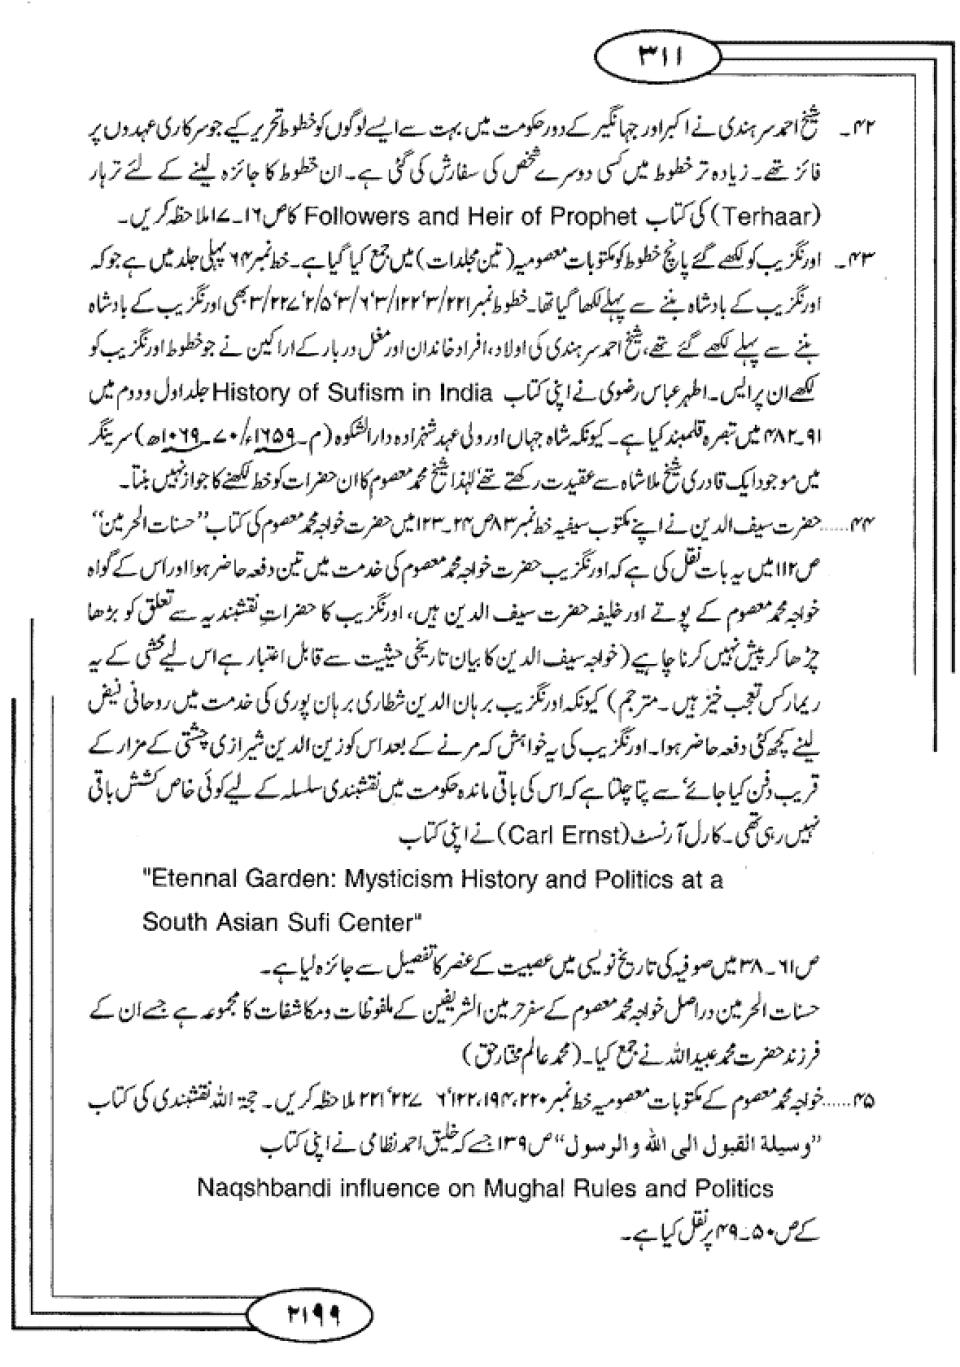 ۳۱۱
۴۲۔ شیخ احمد سرہندی نے اکبر اور جہانگیر کے دور حکومت میں بہت سے ایسے لوگوں کو خطوط تحریر کیے جو سرکاری عہدوں پر
فائز تھے۔ زیادہ تر خطوط میں کسی دوسرے شخص کی سفارش کی گئی ہے۔ ان خطوط کا جائزہ لینے کے لئے ترہار
(Terhaar) کی کتاب Followers and Heir of Prophet کا ص ۱۶۔۱۷ ملاحظہ کریں۔
۴۳۔ اورنگزیب کو لکھے گئے پانچ خطوط کو مکتوبات معصومیہ (تین مجلدات) میں جمع کیا گیا ہے۔ خط نمبر ۶۴ پہلی جلد میں ہے جو کہ
اورنگزیب کے بادشاہ بننے سے پہلے لکھا گیا تھا۔ خطوط نمبر ۳/۲۲۱، ۳/۱۲۲، ۳/۶، ۲/۵، ۳/۲۲۷ بھی اورنگزیب کے بادشاہ
بننے سے پہلے لکھے گئے تھے، شیخ احمد سرہندی کی اولاد، افراد خاندان اور مغل دربار کے اراکین نے جو خطوط اورنگزیب کو
لکھے ان پر ایس۔ اطہر عباس رضوی نے اپنی کتاب History of Sufism in India جلد اول و دوم میں
۴۸۲۔۹۱ میں تبصرہ قلمبند کیا ہے۔ کیونکہ شاہ جہاں اور ولی عہد شہزادہ دارالشکوہ (م۔۱۶۵۹ء/۷۰۔۱۰۶۹ھ) سرینگر
میں موجود ایک قادری شیخ ملا شاہ سے عقیدت رکھتے تھے لہٰذا شیخ محمد معصوم کا ان حضرات کو خط لکھنے کا جواز نہیں بنتا۔
۴۴......حضرت سیف الدین نے اپنے مکتوب سیفیہ خط نمبر ۸۳ ص ۲۴۔۱۲۳ میں حضرت خواجہ محمد معصوم کی کتاب "حسنات الحرمین"
ص ۱۱۲ میں یہ بات نقل کی ہے کہ اورنگزیب حضرت خواجہ محمد معصوم کی خدمت میں تین دفعہ حاضر ہوا اور اس کے گواہ
خواجہ محمد معصوم کے پوتے اور خلیفہ حضرت سیف الدین ہیں، اورنگزیب کا حضراتِ نقشبندیہ سے تعلق کو بڑھا
چڑھا کر پیش نہیں کرنا چاہیے (خواجہ سیف الدین کا بیان تاریخی حیثیت سے قابل اعتبار ہے اس لیے محشی کے یہ
ریمارکس تعجب خیز ہیں۔ مترجم) کیونکہ اورنگزیب برہان الدین شطاری برہان پوری کی خدمت میں روحانی فیض
لینے کچھ کئی دفعہ حاضر ہوا۔ اورنگزیب کی یہ خواہش کہ مرنے کے بعد اس کو زین الدین شیرازی چشتی کے مزار کے
قریب دفن کیا جائے' سے پتا چلتا ہے کہ اس کی باقی ماندہ حکومت میں نقشبندی سلسلہ کے لیے کوئی خاص کشش باقی
نہیں رہی تھی۔ کارل آرنسٹ (Carl Ernst) نے اپنی کتاب
"Etennal Garden: Mysticism History and Politics at a
South Asian Sufi Center"
ص ۶۱۔۳۸ میں صوفیہ کی تاریخ نویسی میں عصبیت کے عنصر کا تفصیل سے جائزہ لیا ہے۔
حسنات الحرمین دراصل خواجہ محمد معصوم کے سفر حرمین الشریفین کے ملفوظات و مکاشفات کا مجموعہ ہے جسے ان کے
فرزند حضرت محمد عبیداللہ نے جمع کیا۔ (محمد عالم مختار حق)
۴۵......خواجہ محمد معصوم کے مکتوبات معصومیہ خط نمبر ۲۲۰، ۱۹۴، ۱۲۲، ۶' ۲۲۷' ۲۲۱ ملاحظہ کریں۔ حجۃ اللہ نقشبندی کی کتاب
"وسیلة القبول الی الله والرسول" ص ۱۳۹ جسے کہ خلیق احمد نظامی نے اپنی کتاب
Naqshbandi influence on Mughal Rules and Politics
کے ص ۵۰۔۴۹ پر نقل کیا ہے۔
۲۱۹۹